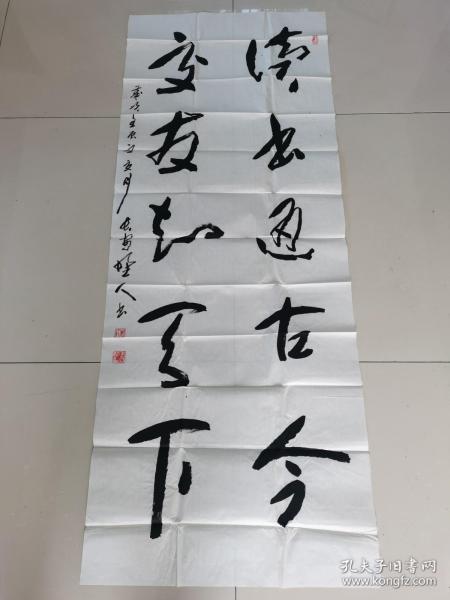 读书通古今
交友知天下
人书
孔夫子旧书网
www.kongfz.com